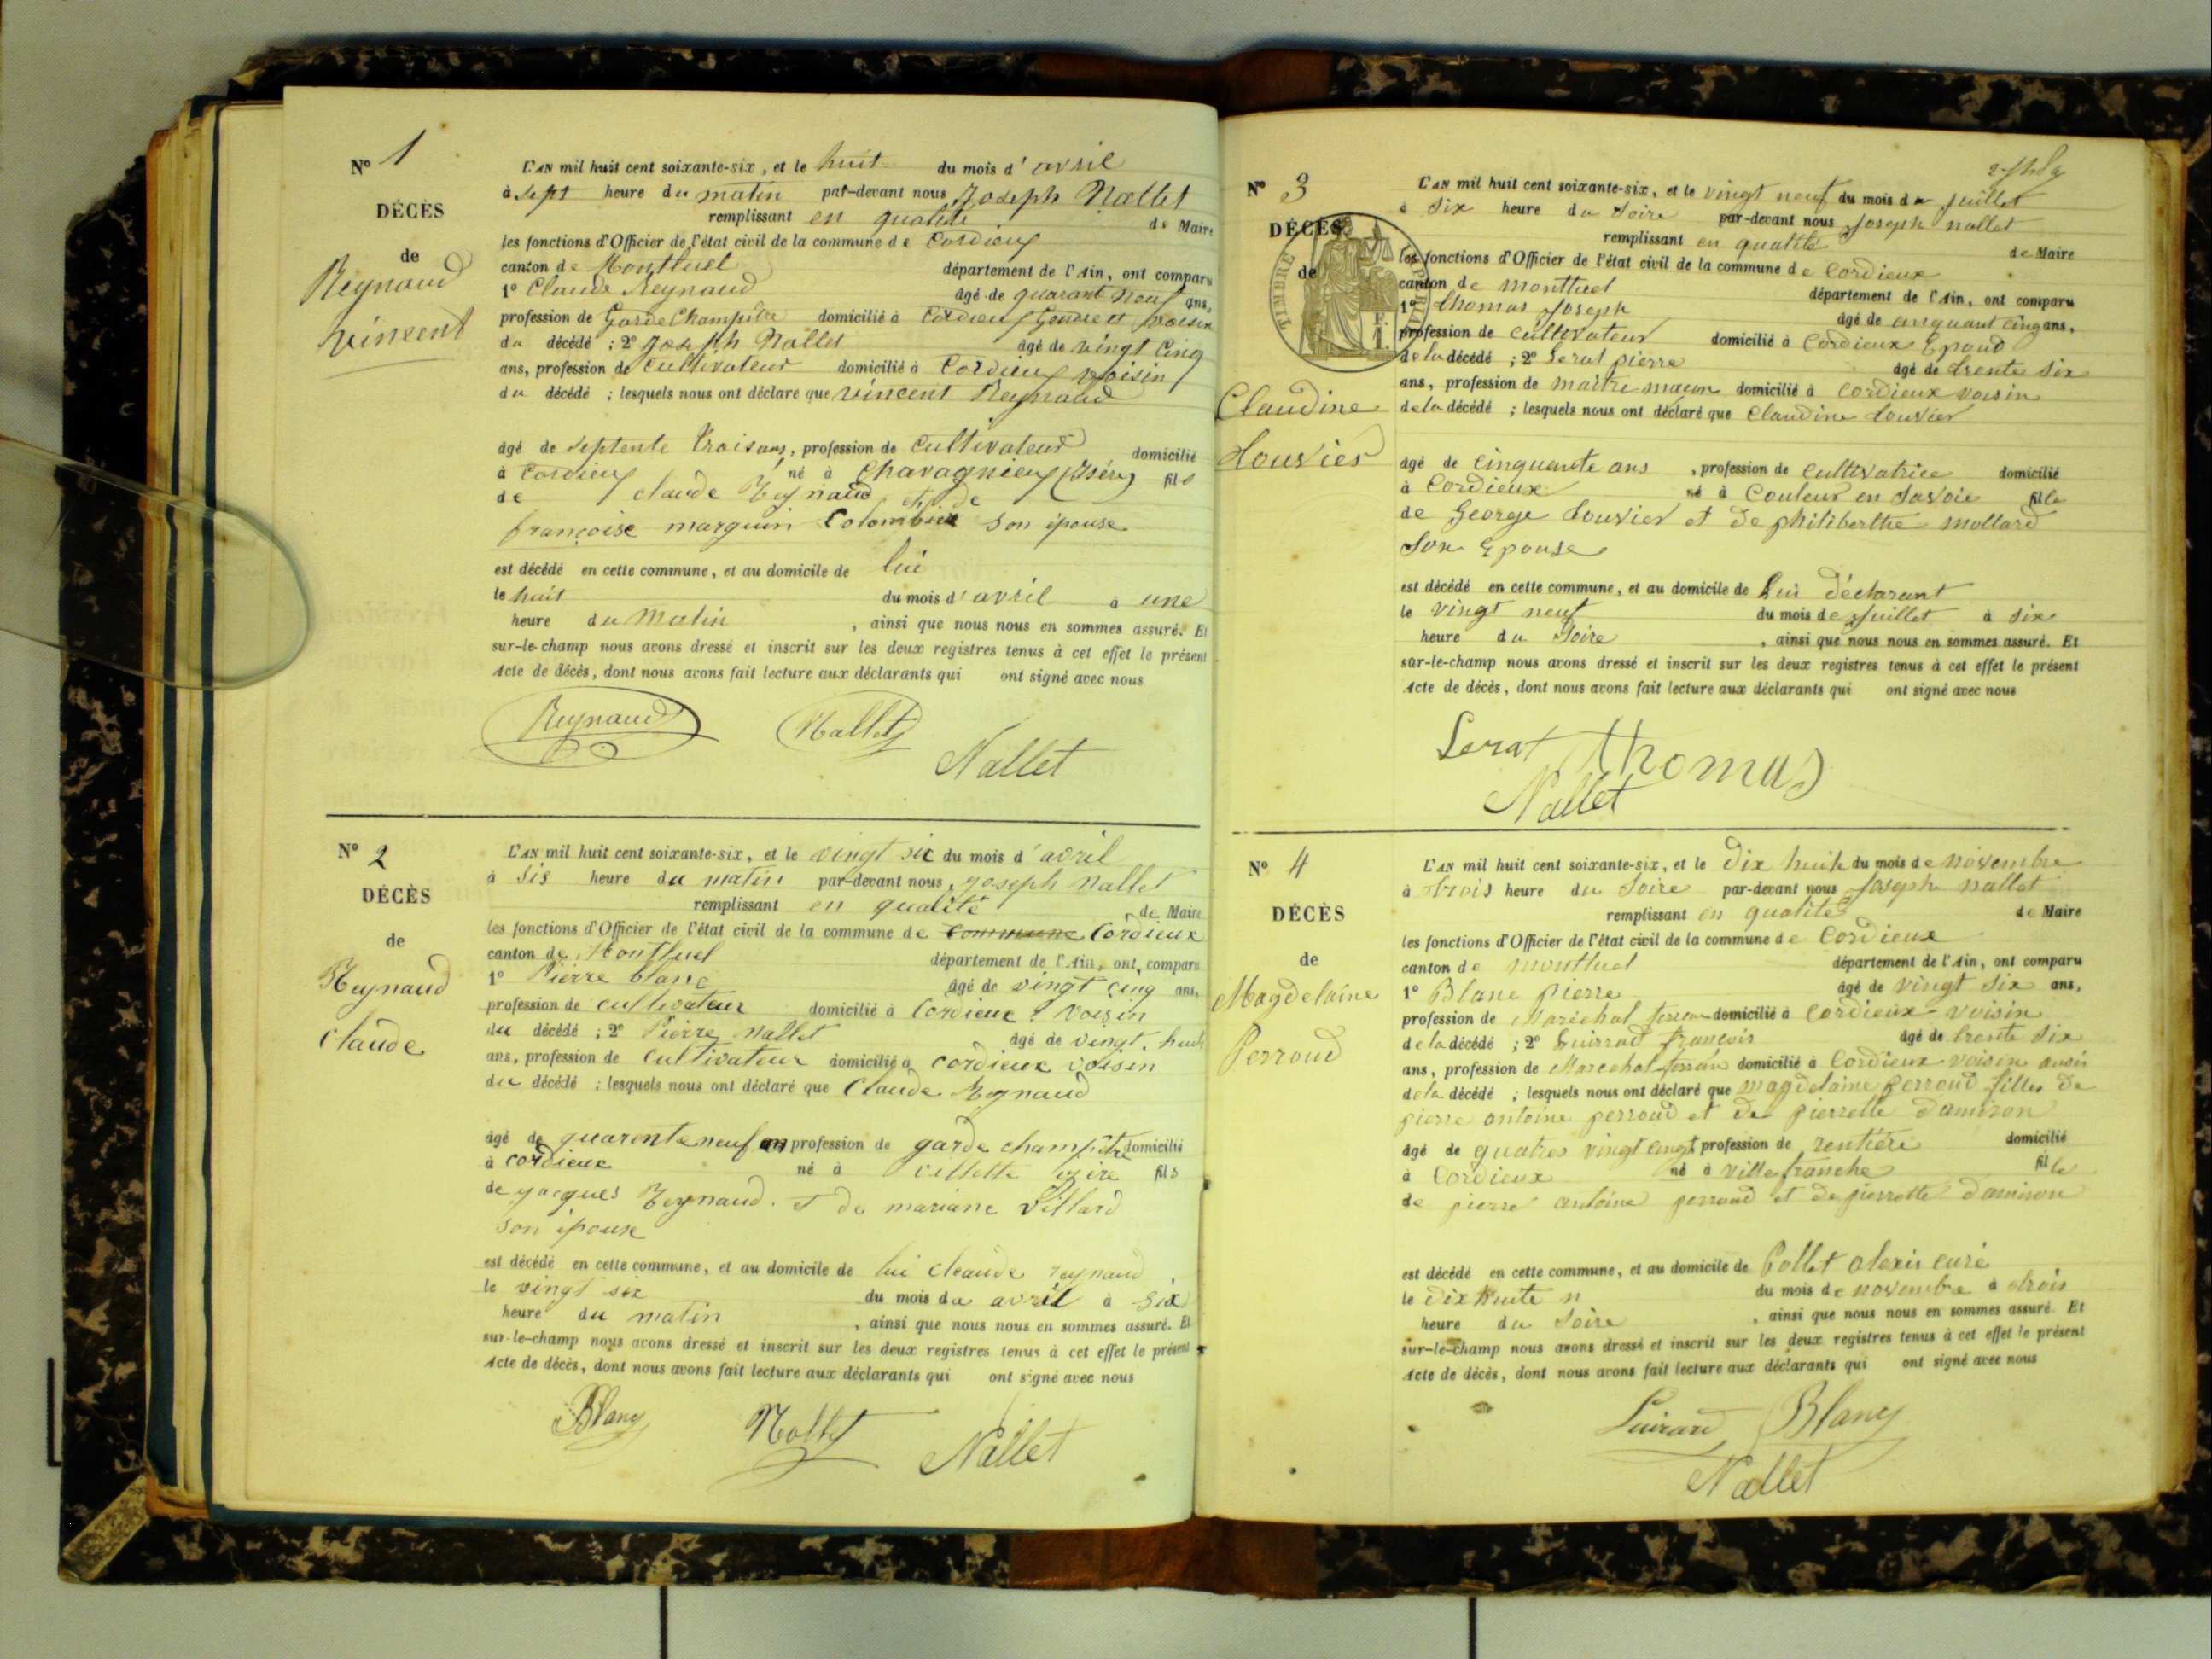 N° 1
DÉCÈS
de
Reynaud
vincent
L'AN mil huit cent soixante-six, et le huit du mois d' avril
à sept heure du matin par-devant nous Joseph Nallet
remplissant en qualité de Maire
les fonctions d'Officier de l'état civil de la commune de Cordieux
canton de Montluel département de l'Ain, ont comparu
1° Claude Reynaud âgé de quarant neuf ans,
profession de Garde Champêtre domicilié à Cordieux voisin
du décédé ; 2° Joseph Nallet âgé de vingt cinq
ans, profession de Cultivateur domicilié à Cordieux voisin
du décédé ; lesquels nous ont déclaré que vincent Reynaud
âgé de septente trois ans, profession de Cultivateur domicilié
à Cordieux né à Chavagnieux (Isère) fils
de claude Reynaud et de
françoise marguin Colombier son épouse
est décédé en cette commune, et au domicile de lui
le huit du mois d' avril à une
heure du Matin , ainsi que nous nous en sommes assuré. Et
sur-le-champ nous avons dressé et inscrit sur les deux registres tenus à cet effet le présent
Acte de décès, dont nous avons fait lecture aux déclarants qui ont signé avec nous
Reynaud Nallet
Nallet
N° 2
DÉCÈS
de
Reynaud
Claude
L'AN mil huit cent soixante-six, et le vingt six du mois d' avril
à sis heure du matin par-devant nous, joseph Nallet
remplissant en qualité de Maire
les fonctions d'Officier de l'état civil de la commune de commune Cordieux
canton de Montluel département de l'Ain, ont comparu
1° Pierre blanc âgé de vingt cinq ans,
profession de cultivateur domicilié à Cordieux voisin
du décédé ; 2° Pierre Nallet âgé de vingt huit
ans, profession de cultivateur domicilié à cordieux voisin
du décédé ; lesquels nous ont déclaré que Claude Reynaud
âgé de quarente neuf ans profession de garde champêtre domicilié
à cordieux né à villette izire fils
de jacques Reynaud et de mariane Villard
son épouse
est décédé en cette commune, et au domicile de lui claude reynaud
le vingt six du mois du avril à six
heure du matin , ainsi que nous nous en sommes assuré. Et
sur-le-champ nous avons dressé et inscrit sur les deux registres tenus à cet effet le présent
Acte de décès, dont nous avons fait lecture aux déclarants qui ont signé avec nous
Blanc Nallet Nallet
N° 3
DÉCÈS
de
TIMBRE IMPÉRIAL
Claudine
Louvier
L'AN mil huit cent soixante-six, et le vingt neuf du mois de juillet
à six heure du soire par-devant nous Joseph nallet
remplissant en qualité de Maire
les fonctions d'Officier de l'état civil de la commune de Cordieux
canton de montluel département de l'Ain, ont comparu
1° thomas Joseph âgé de cinquant cinq ans,
profession de cultivateur domicilié à Cordieux Epoud
de la décédé ; 2° Lerat pierre âgé de trente six
ans, profession de maitre maçon domicilié à cordieux voisin
de la décédé ; lesquels nous ont déclaré que Claudine Louvier
âgé de cinquante ans , profession de cultivatrice domicilié
à Cordieux né à Couleur en Savoie fille
de George Louvier et de philiberthe mollard
son Epouse
est décédé en cette commune, et au domicile de Lui déclarant
le vingt neuf du mois de Juillet à six
heure du soire , ainsi que nous nous en sommes assuré. Et
sur-le-champ nous avons dressé et inscrit sur les deux registres tenus à cet effet le présent
Acte de décès, dont nous avons fait lecture aux déclarants qui ont signé avec nous
Lerat thomas
Nallet
N° 4
DÉCÈS
de
Magdelaine
Perroud
L'AN mil huit cent soixante-six, et le Dix huite du mois de novembre
à trois heure du soire par-devant nous Joseph nallet
remplissant en qualité de Maire
les fonctions d'Officier de l'état civil de la commune de Cordieux
canton de montluel département de l'Ain, ont comparu
1° Blanc pierre âgé de vingt six ans,
profession de Maréchal domicilié à Cordieux voisin
de la décédé ; 2° Guirrad françois âgé de trente six
ans, profession de Marechal domicilié à Cordieux voisin aussi
de la décédé ; lesquels nous ont déclaré que magdelaine perroud fille de
pierre antoine perroud et de pierrette damiron
âgé de quatres vingt cinq profession de rentiére domicilié
à Cordieux né à villefranche fille
de pierre antoine perroud et de pierrette damiron
est décédé en cette commune, et au domicile de Collet alexis curé
le dix huite n du mois de novembre à trois
heure du soire , ainsi que nous nous en sommes assuré. Et
sur-le-champ nous avons dressé et inscrit sur les deux registres tenus à cet effet le présent
Acte de décès, dont nous avons fait lecture aux déclarants qui ont signé avec nous
Guirard Blanc
Nallet